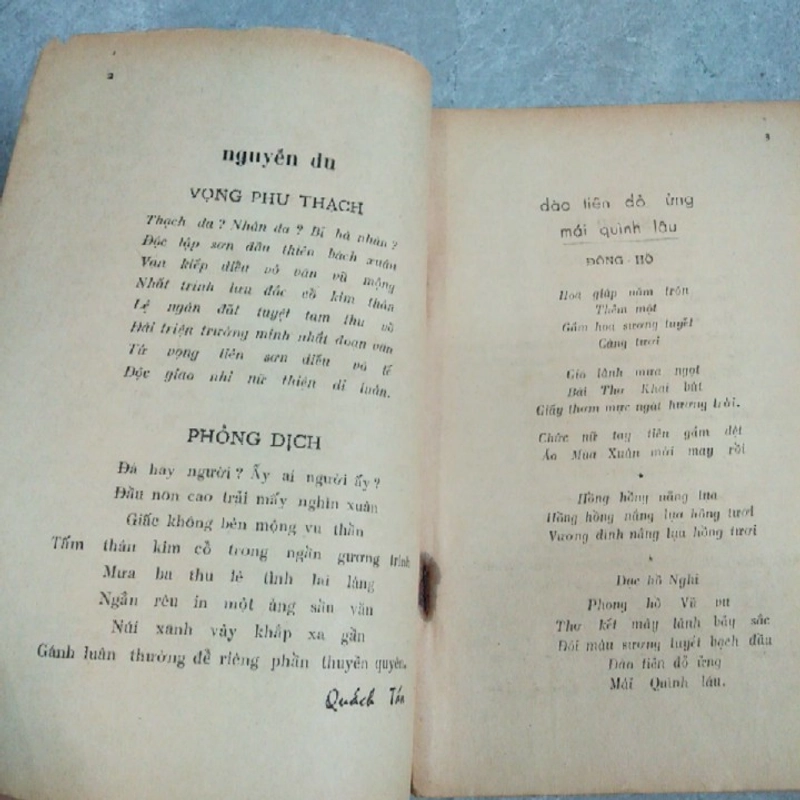 2
nguyễn du
VỌNG PHU THẠCH
Thạch da? Nhân da? Bỉ hà nhân?
Độc lập sơn đầu thiên bách xuân
Vạn kiếp diểu vô vân vũ mộng
Nhất trinh lưu đắc cổ kim thân
Lệ ngân đát tuyệt tam thu vũ
Đài triện trường minh nhất đoạn văn
Tứ vọng liên sơn diểu vô tế
Độc giao nhi nữ thiện di luân.
PHỎNG DỊCH
Đá hay người? Ấy ai người ấy?
Đầu non cao trải mấy nghìn xuân
Giấc không bén mộng vu thần
Tấm thân kim cổ trong ngần gương trinh
Mưa ba thu lệ tình lai láng
Ngấn rêu in một áng sần văn
Núi xanh vây khắp xa gần
Gánh luân thường để riêng phần thuyền quyên.
Quách Tấn
3
đào tiên đỏ ửng
mái quỳnh lâu
ĐÔNG HỒ
Hoa giáp năm tròn
Thêm một
Gấm hoa sương tuyết
Càng tươi
Gió lành mưa ngọt
Bài Thơ Khai bút
Giấy thơm mực ngát hương trời.
Chức nữ tay tiên gấm dệt
Áo Mùa Xuân mới may rồi
*
Hồng hồng nắng lụa
Hồng hồng nắng lụa hồng tươi
Vương đình nắng lụa hồng tươi
*
Dục hồ Nghi
Phong hồ Vũ vu
Thơ kết mây lành bảy sắc
Đôi mái sương tuyết bạch đầu
Đào tiên đỏ ửng
Mái Quỳnh lâu.